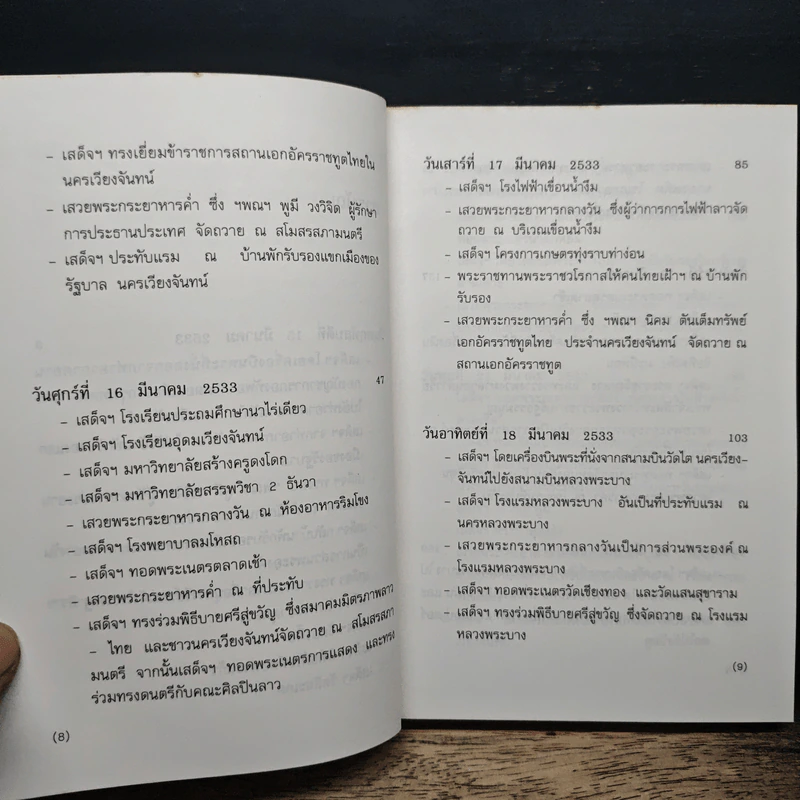 - เสด็จฯ ทรงเยี่ยมข้าราชการสถานเอกอัครราชทูตไทยใน
นครเวียงจันทน์
- เสวยพระกระยาหารค่ำ ซึ่ง ฯพณฯ พูมี วงวิจิด ผู้รักษา
การประธานประเทศ จัดถวาย ณ สโมสรสภามนตรี
- เสด็จฯ ประทับแรม ณ บ้านพักรับรองแขกเมืองของ
รัฐบาล นครเวียงจันทน์
วันศุกร์ที่ 16 มีนาคม 2533 47
- เสด็จฯ โรงเรียนประถมศึกษานาไร่เดียว
- เสด็จฯ โรงเรียนอุดมเวียงจันทน์
- เสด็จฯ มหาวิทยาลัยสร้างครูดงโดก
- เสด็จฯ มหาวิทยาลัยสรรพวิชา 2 ธันวา
- เสวยพระกระยาหารกลางวัน ณ ห้องอาหารริมโขง
- เสด็จฯ โรงพยาบาลมโหสถ
- เสด็จฯ ทอดพระเนตรตลาดเช้า
- เสวยพระกระยาหารค่ำ ณ ที่ประทับ
- เสด็จฯ ทรงร่วมพิธีบายศรีสู่ขวัญ ซึ่งสมาคมมิตรภาพลาว
- ไทย และชาวนครเวียงจันทน์จัดถวาย ณ สโมสรสภา
มนตรี จากนั้นเสด็จฯ ทอดพระเนตรการแสดง และทรง
ร่วมทรงดนตรีกับคณะศิลปินลาว
(8)
วันเสาร์ที่ 17 มีนาคม 2533 85
- เสด็จฯ โรงไฟฟ้าเขื่อนน้ำงึม
- เสวยพระกระยาหารกลางวัน ซึ่งผู้ว่าการการไฟฟ้าลาวจัด
ถวาย ณ บริเวณเขื่อนน้ำงึม
- เสด็จฯ โครงการเกษตรทุ่งราบท่าง่อน
- พระราชทานพระราชวโรกาสให้คนไทยเฝ้าฯ ณ บ้านพัก
รับรอง
- เสวยพระกระยาหารค่ำ ซึ่ง ฯพณฯ นิคม ตันเต็มทรัพย์
เอกอัครราชทูตไทย ประจำนครเวียงจันทน์ จัดถวาย ณ
สถานเอกอัครราชทูต
วันอาทิตย์ที่ 18 มีนาคม 2533 103
- เสด็จฯ โดยเครื่องบินพระที่นั่งจากสนามบินวัดไต นครเวียง-
จันทน์ไปยังสนามบินหลวงพระบาง
- เสด็จฯ โรงแรมหลวงพระบาง อันเป็นที่ประทับแรม ณ
นครหลวงพระบาง
- เสวยพระกระยาหารกลางวันเป็นการส่วนพระองค์ ณ
โรงแรมหลวงพระบาง
- เสด็จฯ ทอดพระเนตรวัดเชียงทอง และวัดแสนสุขาราม
- เสด็จฯ ทรงร่วมพิธีบายศรีสู่ขวัญ ซึ่งจัดถวาย ณ โรงแรม
หลวงพระบาง
(9)